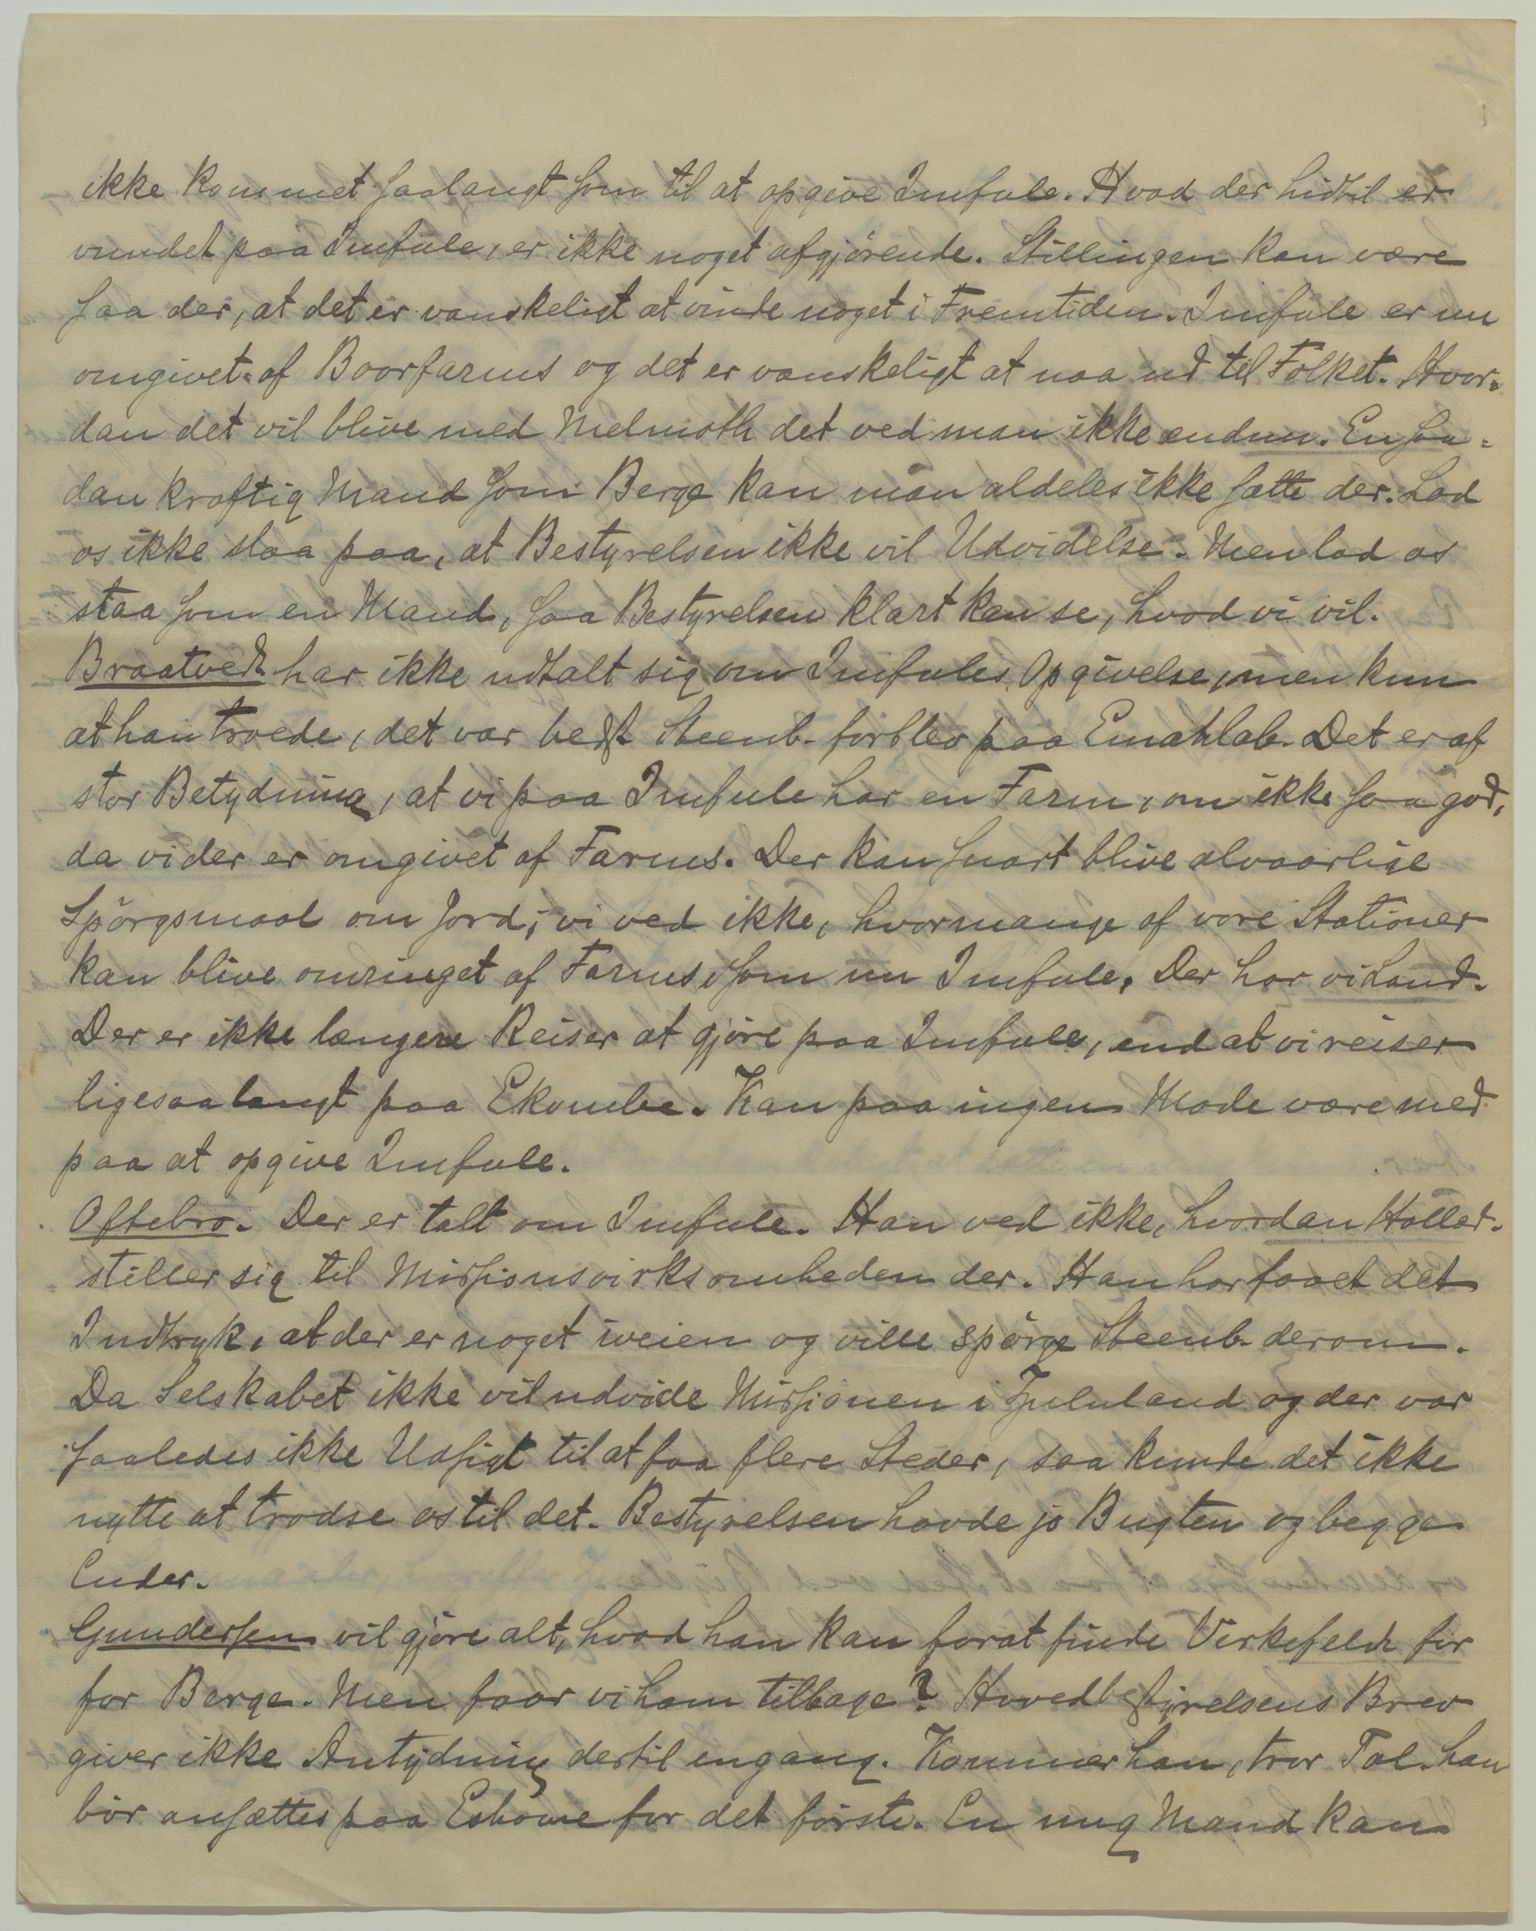 ikke kommet saalangt som til at opgive Imfule. Hvad der hidtil er
vundet paa Imfule, er ikke noget afgjörende. Stillingen kan være
saa der, at det er vanskeligt at vinde noget i Fremtiden. Imfule er nu
omgivet af Boorfarms og det er vanskeligt at naa ud til Folket. Hvor-
dan det vil blive med Melmoth det ved man ikke endnu. En saa-
dan kraftig Mand som Berge kan man aldeles ikke sætte der. Lad
os ikke staa paa, at Bestyrelsen ikke vil Udvidelse. Men lad os
staa som en Mand, saa Bestyrelsen klart kan se, hvad vi vil.
Braatvedt har ikke udtalt sig om Imfules Opgivelse, men kun
at han troede, det var bedst Steenb. forblev paa Emahlab. Det er af
stor Betydning, at vi paa Imfule har en Farm, om ikke saa god,
da vi der er omgivet af Farms. Der kan snart blive alvaarlige
Spörgsmaal om Jord; vi ved ikke, hvormange af vore Stationer
kan blive omringet af Farms som nu Imfule. Der har vi Land.
Der er ikke længere Reiser at gjöre paa Imfule, end at vi reiser
ligesaa langt paa Ekombe. Kan paa ingen Maade være med
paa at opgive Imfule.
Oftebro. Der er talt om Imfule. Han ved ikke, hvordan Hallad.
stiller sig til Missionsvirksomheden der. Han har faaet det
Indtryk, at der er noget iveien og ville spörge Steenb. derom.
Da Selskabet ikke vil udvide Missionen i Zululand og der var
saaledes ikke Udsigt til at faa flere Steder, saa kunde det ikke
nytte at trodse os til det. Bestyrelsen havde jo Bugten og begge
Ender.
Gundersen vil gjöre alt, hvad han kan forat finde Virkefeldt for
for Berge. Men faar vi ham tilbage? Hovedbestyrelsens Brev
giver ikke Antydning dertil engang. Kommer han, tror Tal. han
bör ansættes paa Eshowe for det förste. En ung Mand kan